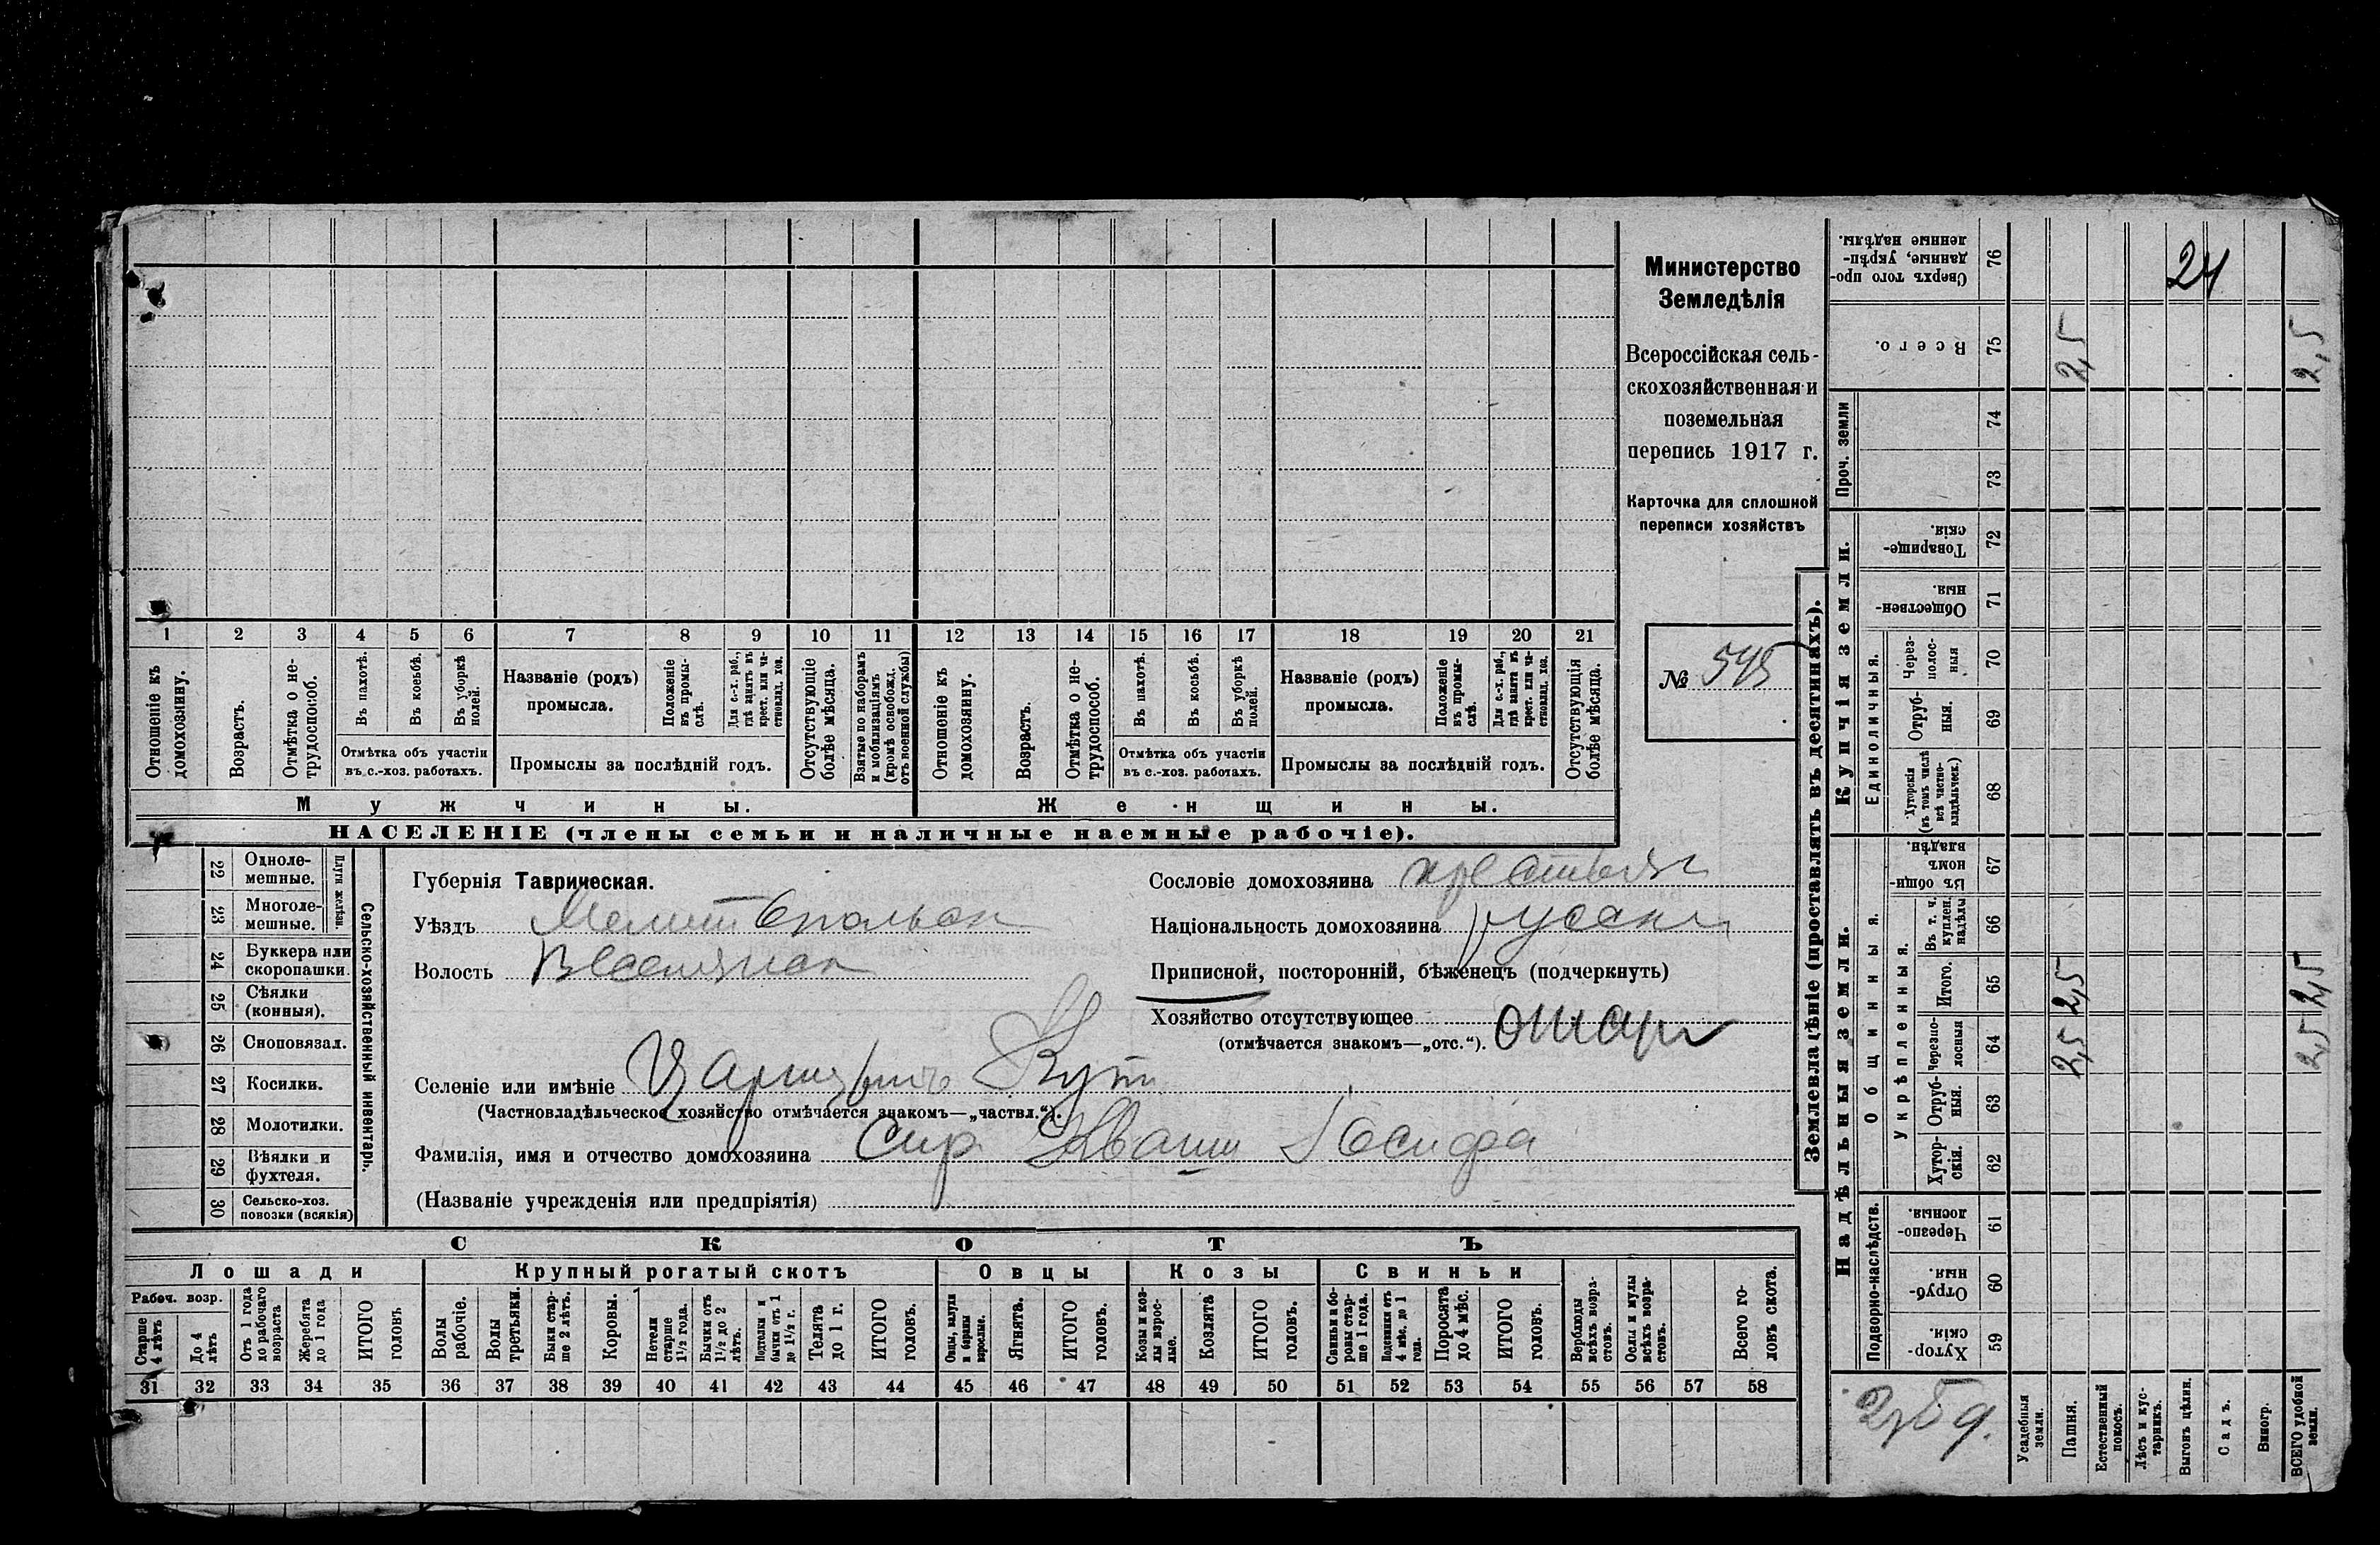 Министерство
Земледѣлія
Всероссійская сель-
скохозяйственная и
поземельная
перепись 1917 г.
Карточка для сплошной
переписи хозяйствъ
№ 545
1 2 3 4 5 6 7 8 9 10 11 12 13 14 15 16 17 18 19 20 21
Отношеніе къ домохозяину.
Возрастъ.
Отмѣтка о не-трудоспособ.
Въ пахотѣ.
Въ косьбѣ.
Въ уборкѣ полей.
Отмѣтка объ участіи
въ с.-хоз. работахъ.
Названіе (родъ)
промысла.
Положеніе въ промы-слѣ.
Для с.-х. раб., гдѣ занятъ въ крест. или ча-стновлад. хоз.
Промыслы за послѣдній годъ.
Отсутствующіе болѣе мѣсяца.
Взятые по наборамъ и мобилизаціямъ (кромѣ освобожд. отъ военной службы)
Отношеніе къ домохозяину.
Возрастъ.
Отмѣтка о не-трудоспособ.
Въ пахотѣ.
Въ косьбѣ.
Въ уборкѣ полей.
Отмѣтка объ участіи
въ с.-хоз. работахъ.
Названіе (родъ)
промысла.
Положеніе въ промы-слѣ.
Для с.-х. раб., гдѣ занята въ крест. или ча-стновлад. хоз.
Промыслы за послѣдній годъ.
Отсутствующія болѣе мѣсяца.
Мужчины.
Женщины.
НАСЕЛЕНІЕ (члены семьи и наличные наемные рабочіе).
22 Одноле-мешные.
23 Многоле-мешные.
Плуги желѣзн.
24 Буккера или скоропашки.
25 Сѣялки (конныя).
26 Сноповязал.
27 Косилки.
28 Молотилки.
29 Вѣялки и фухтеля.
30 Сельско-хоз. повозки (всякія)
Сельско-хозяйственный инвентарь.
Губернія Таврическая.
Уѣздъ Мелитопольск
Волость Веселянск
Сословіе домохозяина крестьян
Національность домохозяина русски
Приписной, посторонній, бѣженецъ (подчеркнуть)
Хозяйство отсутствующее
(отмѣчается знакомъ—„отс.“).
Селеніе или имѣніе Царицынъ Кут
(Частновладѣльческое хозяйство отмѣчается знакомъ—„частвл.“).
Фамилія, имя и отчество домохозяина Сир Иван Іосифа
(Названіе учрежденія или предпріятія)
СКОТЪ
Лошади
Крупный рогатый скотъ
Овцы
Козы
Свиньи
Рабоч. возр.
Старше 4 лѣтъ
До 4 лѣтъ
Отъ 1 года до рабочаго возраста
Жеребята до 1 года
ИТОГО головъ
Волы рабочіе.
Волы третьяки.
Быки стар-ше 2 лѣтъ.
Коровы.
Нетели старше 1½ года.
Бычки отъ 1½ до 2 лѣтъ.
Подтелки и бычки отъ 1 до 1½ г.
Телята до 1 г.
ИТОГО головъ.
Овцы, валухи и бараны взрослые.
Ягнята.
ИТОГО головъ.
Козы и коз-лы взрос-лые.
Козлята
ИТОГО головъ.
Свиньи и бо-ровы стар-ше 1 года.
Подсвинки отъ 4 мѣс. до 1 года.
Поросята до 4 мѣс.
ИТОГО головъ.
Верблюды всѣхъ возра-стовъ.
Ослы и мулы всѣхъ возра-стовъ.
Всего го-ловъ скота.
31 32 33 34 35 36 37 38 39 40 41 42 43 44 45 46 47 48 49 50 51 52 53 54 55 56 57 58
Землевладѣніе (проставлять въ десятинахъ).
Надѣльныя земли.
Купчія земли.
Проч. земли
Подворно-наслѣдств.
Общинныя.
Укрѣпленныя.
Единоличныя.
Сверхъ того про-данные, укрѣп-ленные надѣлы. 76 24
Всего. 75 2,5 2,5
74
73
Товарище-скія. 72
Обществен-ныя. 71
Через-полос-ныя 70
Отруб-ныя. 69
Хуторскія (въ томъ числѣ всѣ частно-владѣльческ.) 68
Въ общин-номъ владѣн. 67
Въ т. ч. куплен. надѣлы 66
Итого. 65 2,5 2,5
Черезпо-лосныя 64 2,5 2,5
Отруб-ныя. 63
Хутор-скія. 62
Черезпо-лосныя. 61
Отруб-ныя. 60
Хутор-скія. 59
2,5 д.
Усадебныя земли.
Пашня.
Естественный покосъ.
Лѣсъ и кус-тарникъ.
Выгонъ цѣлин.
Садъ.
Виногр.
ВСЕГО удобной земли.